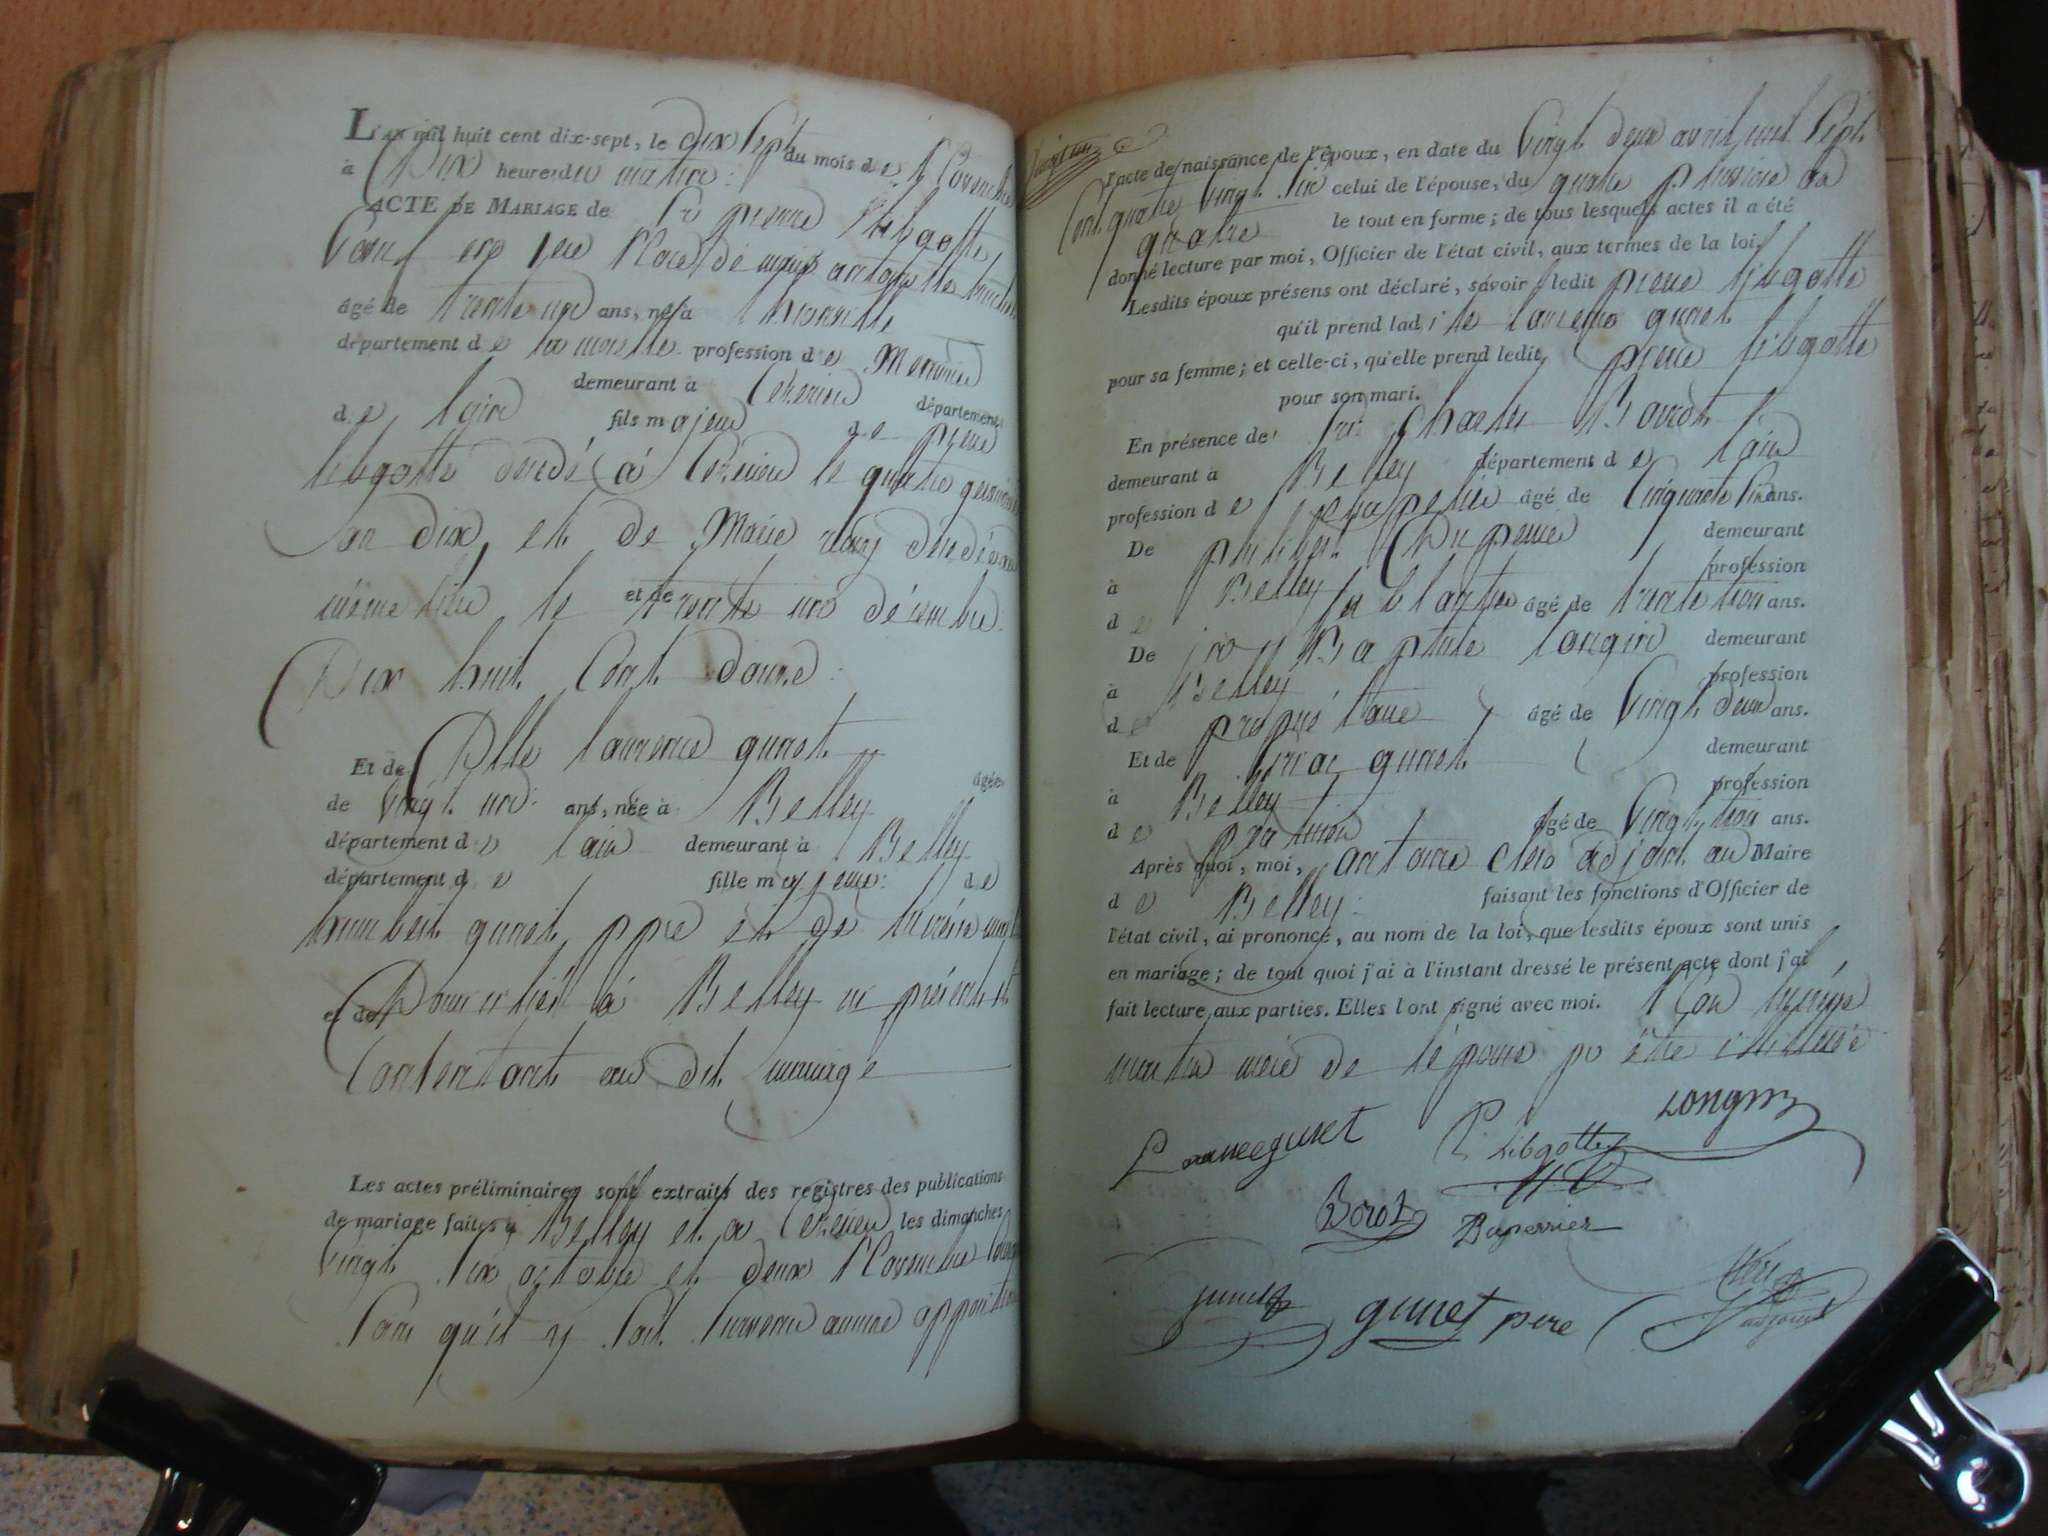 L'AN mil huit cent dix-sept, le dix Sept du mois de Novembre
à Dix heures du matin :
ACTE DE MARIAGE de Sr pierre libgotte
âgé de trente un ans, né à thionville
département de la moselle profession de
demeurant à Ceyzerieu département
de l'ain fils majeur de pierre
libgotte décédé à Ceyzerieu le quatre
an dix, et de Marie décédée au
même lieu le et de trente un décembre
Dix huit Cent douze :
Et de Dlle laurence gunet âgée
de vingt un ans, née à Belley
département de l'ain demeurant à Belley
département de fille majeure : de
humbert gunet ppre et de
et de Domiciliés à Belley ici présents et
Consentants au dit mariage
Les actes préliminaires sont extraits des registres des publications
de mariage faites à Belley et à Ceyzerieu les dimanches
vingt Six octobre et deux Novembre
Sans qu'il y Soit Survenu aucune opposition
l'acte de naissance de l'époux, en date du vingt deux avril mil Sept
Cent quatre vingt Six celui de l'épouse, du quatre pluviose an
quatre le tout en forme ; de tous lesquels actes il a été
donné lecture par moi, Officier de l'état civil, aux termes de la loi.
Lesdits époux présens ont déclaré, savoir ledit pierre libgotte
qu'il prend ladite laurence gunet
pour sa femme ; et celle-ci, qu'elle prend ledit pierre libgotte
pour son mari.
En présence de Sr Charles Borot
demeurant à Belley département de l'ain
profession de âgé de Cinquante Six ans.
De philibert Duperrier demeurant
à Belley profession
de âgé de trente trois ans.
De jean Baptiste longin demeurant
à Belley profession
de propriétaire âgé de vingt deux ans.
Et de gunet demeurant
à Belley profession
de praticien âgé de vingt trois ans.
Après quoi, moi, antoine adjoint au Maire
de Belley : faisant les fonctions d'Officier de
l'état civil, ai prononcé, au nom de la loi, que lesdits époux sont unis
en mariage ; de tout quoi j'ai à l'instant dressé le présent acte dont j'ai
fait lecture aux parties. Elles l'ont signé avec moi.
mère de l'épouse pr être illitérée
Laurence gunet P. Libgotte Longin
Borot Duperrier
gunet gunet pere adjoint